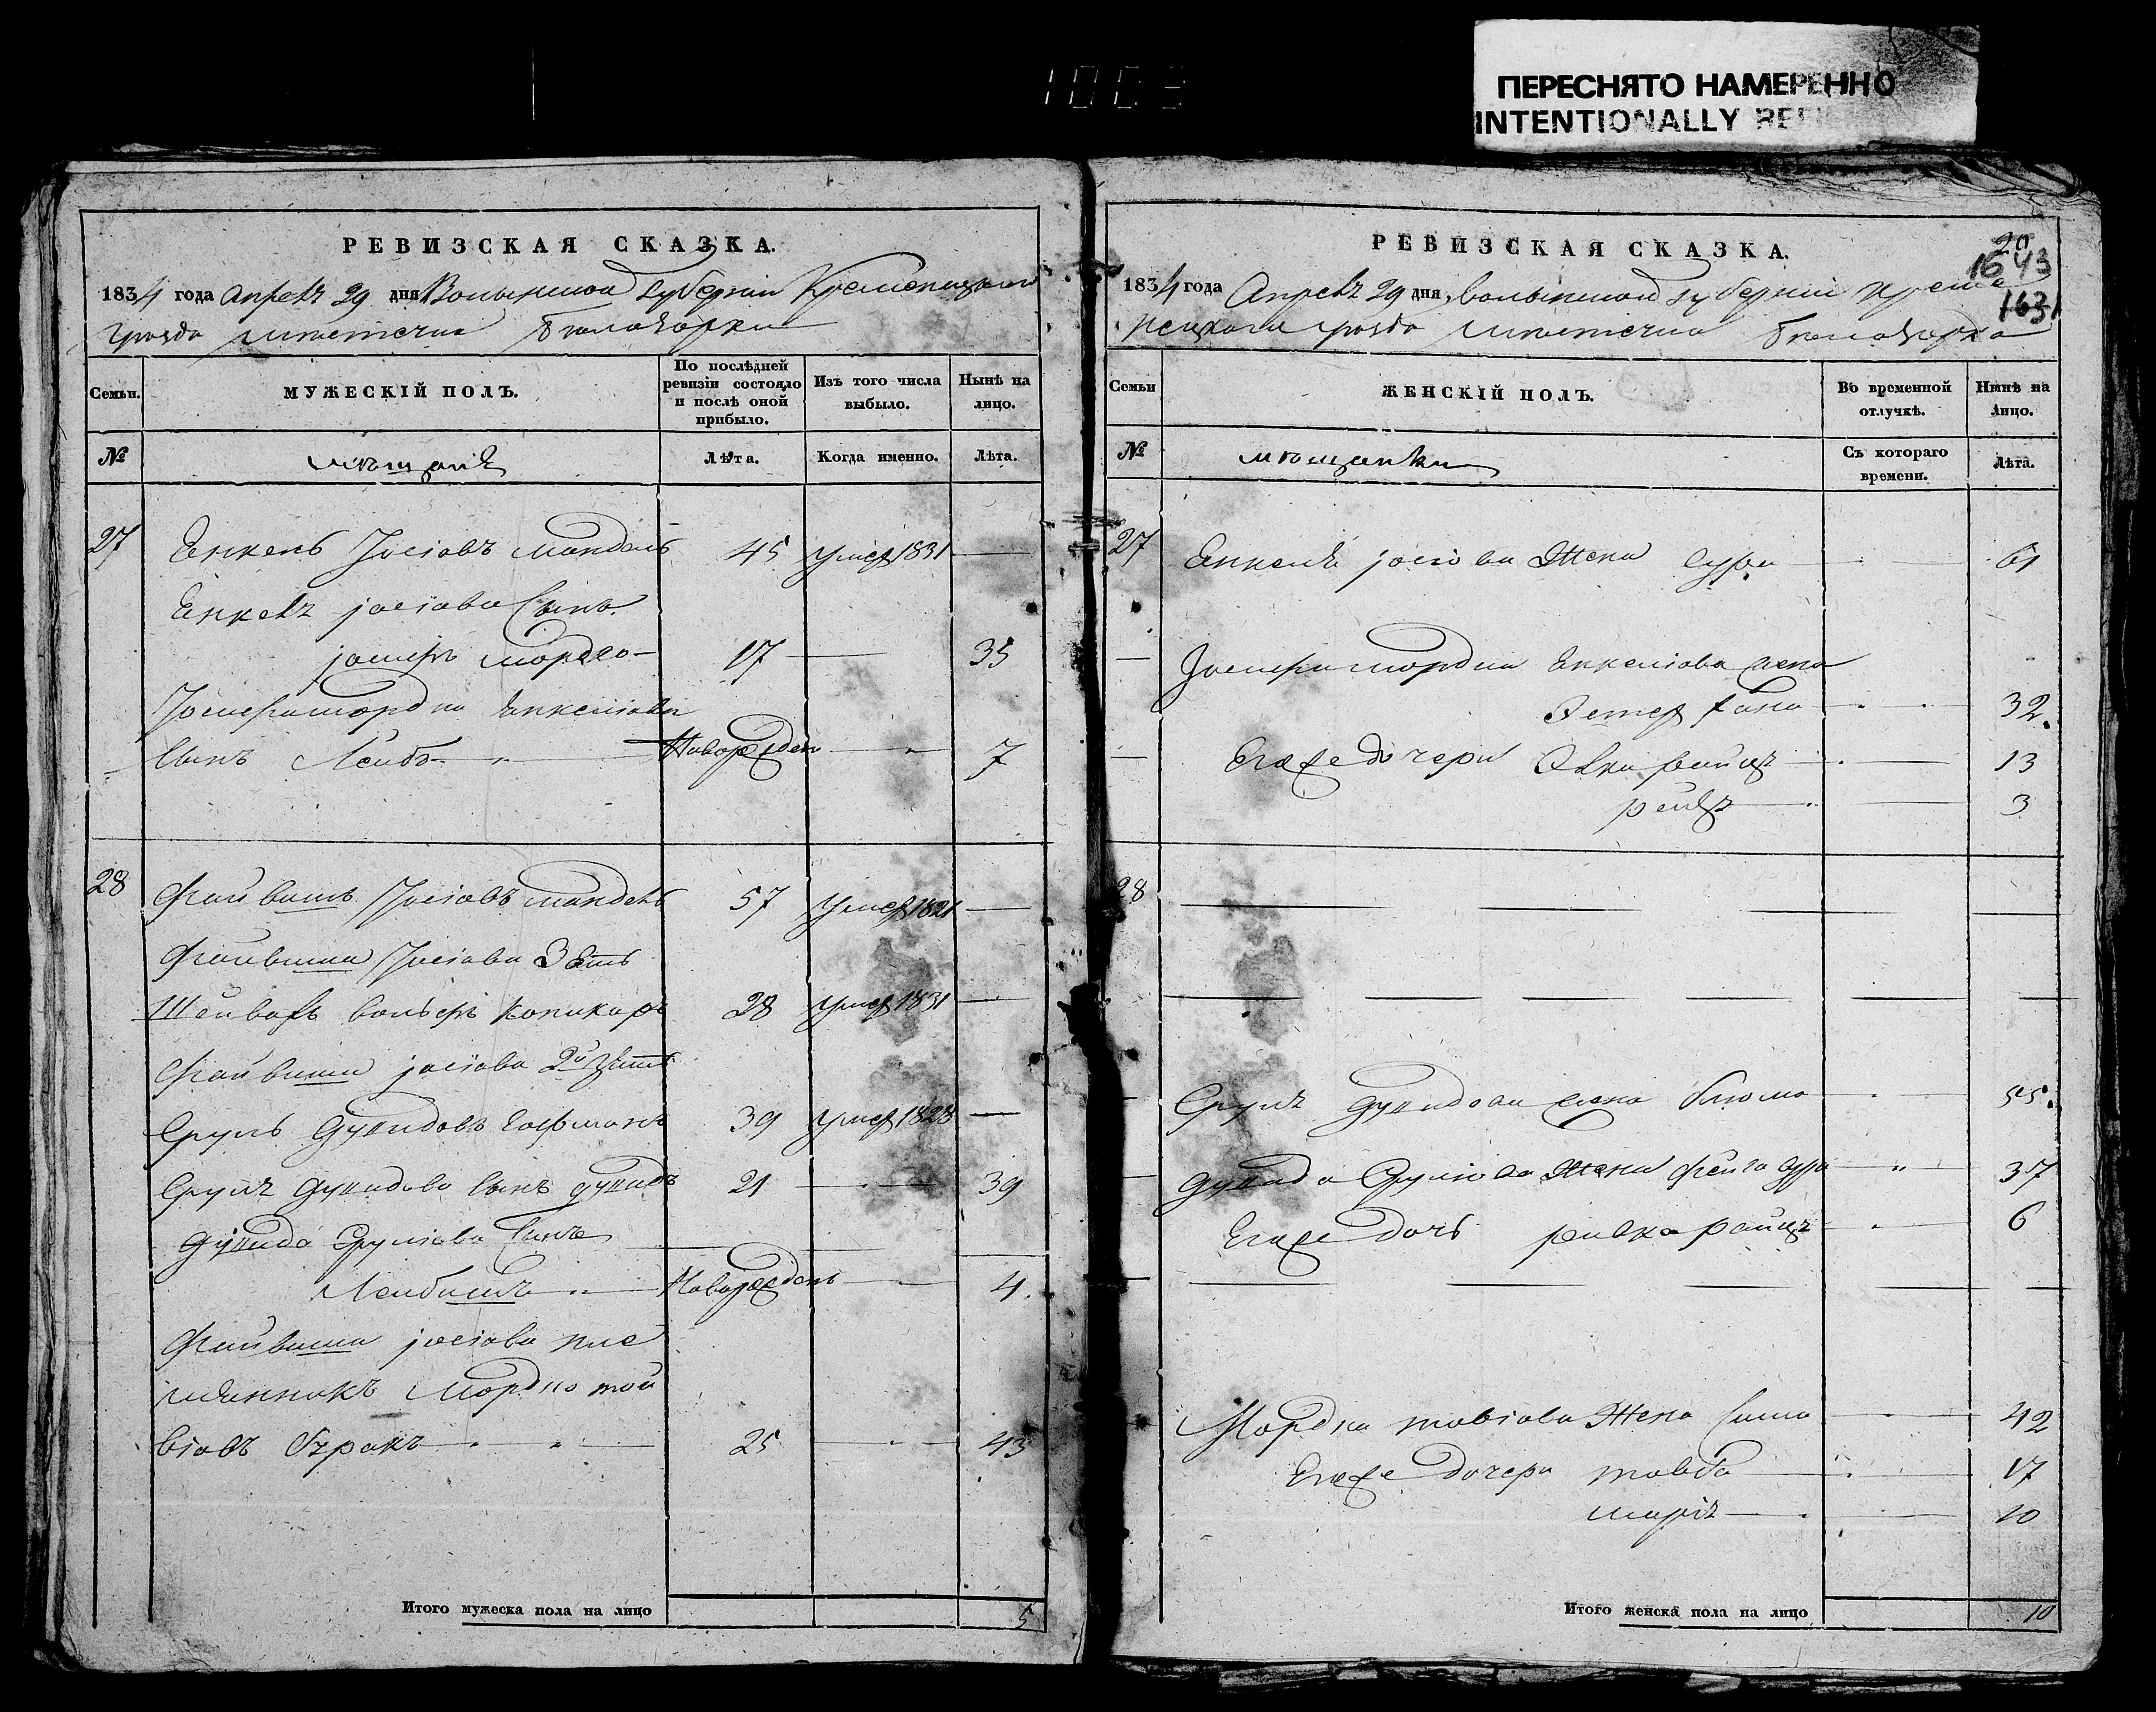 1003
ПЕРЕСНЯТО НАМЕРЕННО
INTENTIONALLY
РЕВИЗСКАЯ СКАЗКА.
1834 года Апреля 29 дня Волынской губернии Кременецкого
уезда местечка Белозорки
Семьи.
МУЖЕСКІЙ ПОЛЪ.
По послѣдней ревизіи состояло и послѣ оной прибыло.
Изъ того числа выбыло.
Нынѣ на лицо.
№
мещане
Лѣта.
Когда именно.
Лѣта.
27 Енкель Іосіовъ Мандель 45 умер 1831
Енкеля іосіова Сынъ
17 35
Енкеліова
Сынъ Лейба Новорожден 7
28 Файвишъ Іосіовъ Мандель 57 умер 1821
Файвиша Іосіова Зять
28 умер 1831
Файвиша іосіова 2й зять
Сруль 39 умер 1823
Сруля сынъ 21 39
Сруліова Сынъ
Лейбишъ Новорожден 4.
Файвиша іосіова пле
мянникъ Мордко тов
віовъ 25 43
Итого мужеска пола на лицо 5
РЕВИЗСКАЯ СКАЗКА.
20
1643
1631
1834 года Апреля 29 дня, волынской губерніи креме
нецкаго уезда местечка белозорка
Семьи
ЖЕНСКІЙ ПОЛЪ.
Во временной отлучкѣ.
Нынѣ на лицо.
№
мещанки
Съ котораго времени.
Лѣта.
27 Енкеля іосіова Жена сура 61
Енкеліова жена
Эстер хана 32.
Егоже дочери 13
рейзя 3
28
Сруля жена блюма 55.
Сруліова Жена фейга сура 37
Егоже дочь ривка райця 6
Мордка товіова Жена Сима 42
Егоже дочери товба 17
маріе 10
Итого женска пола на лицо 10